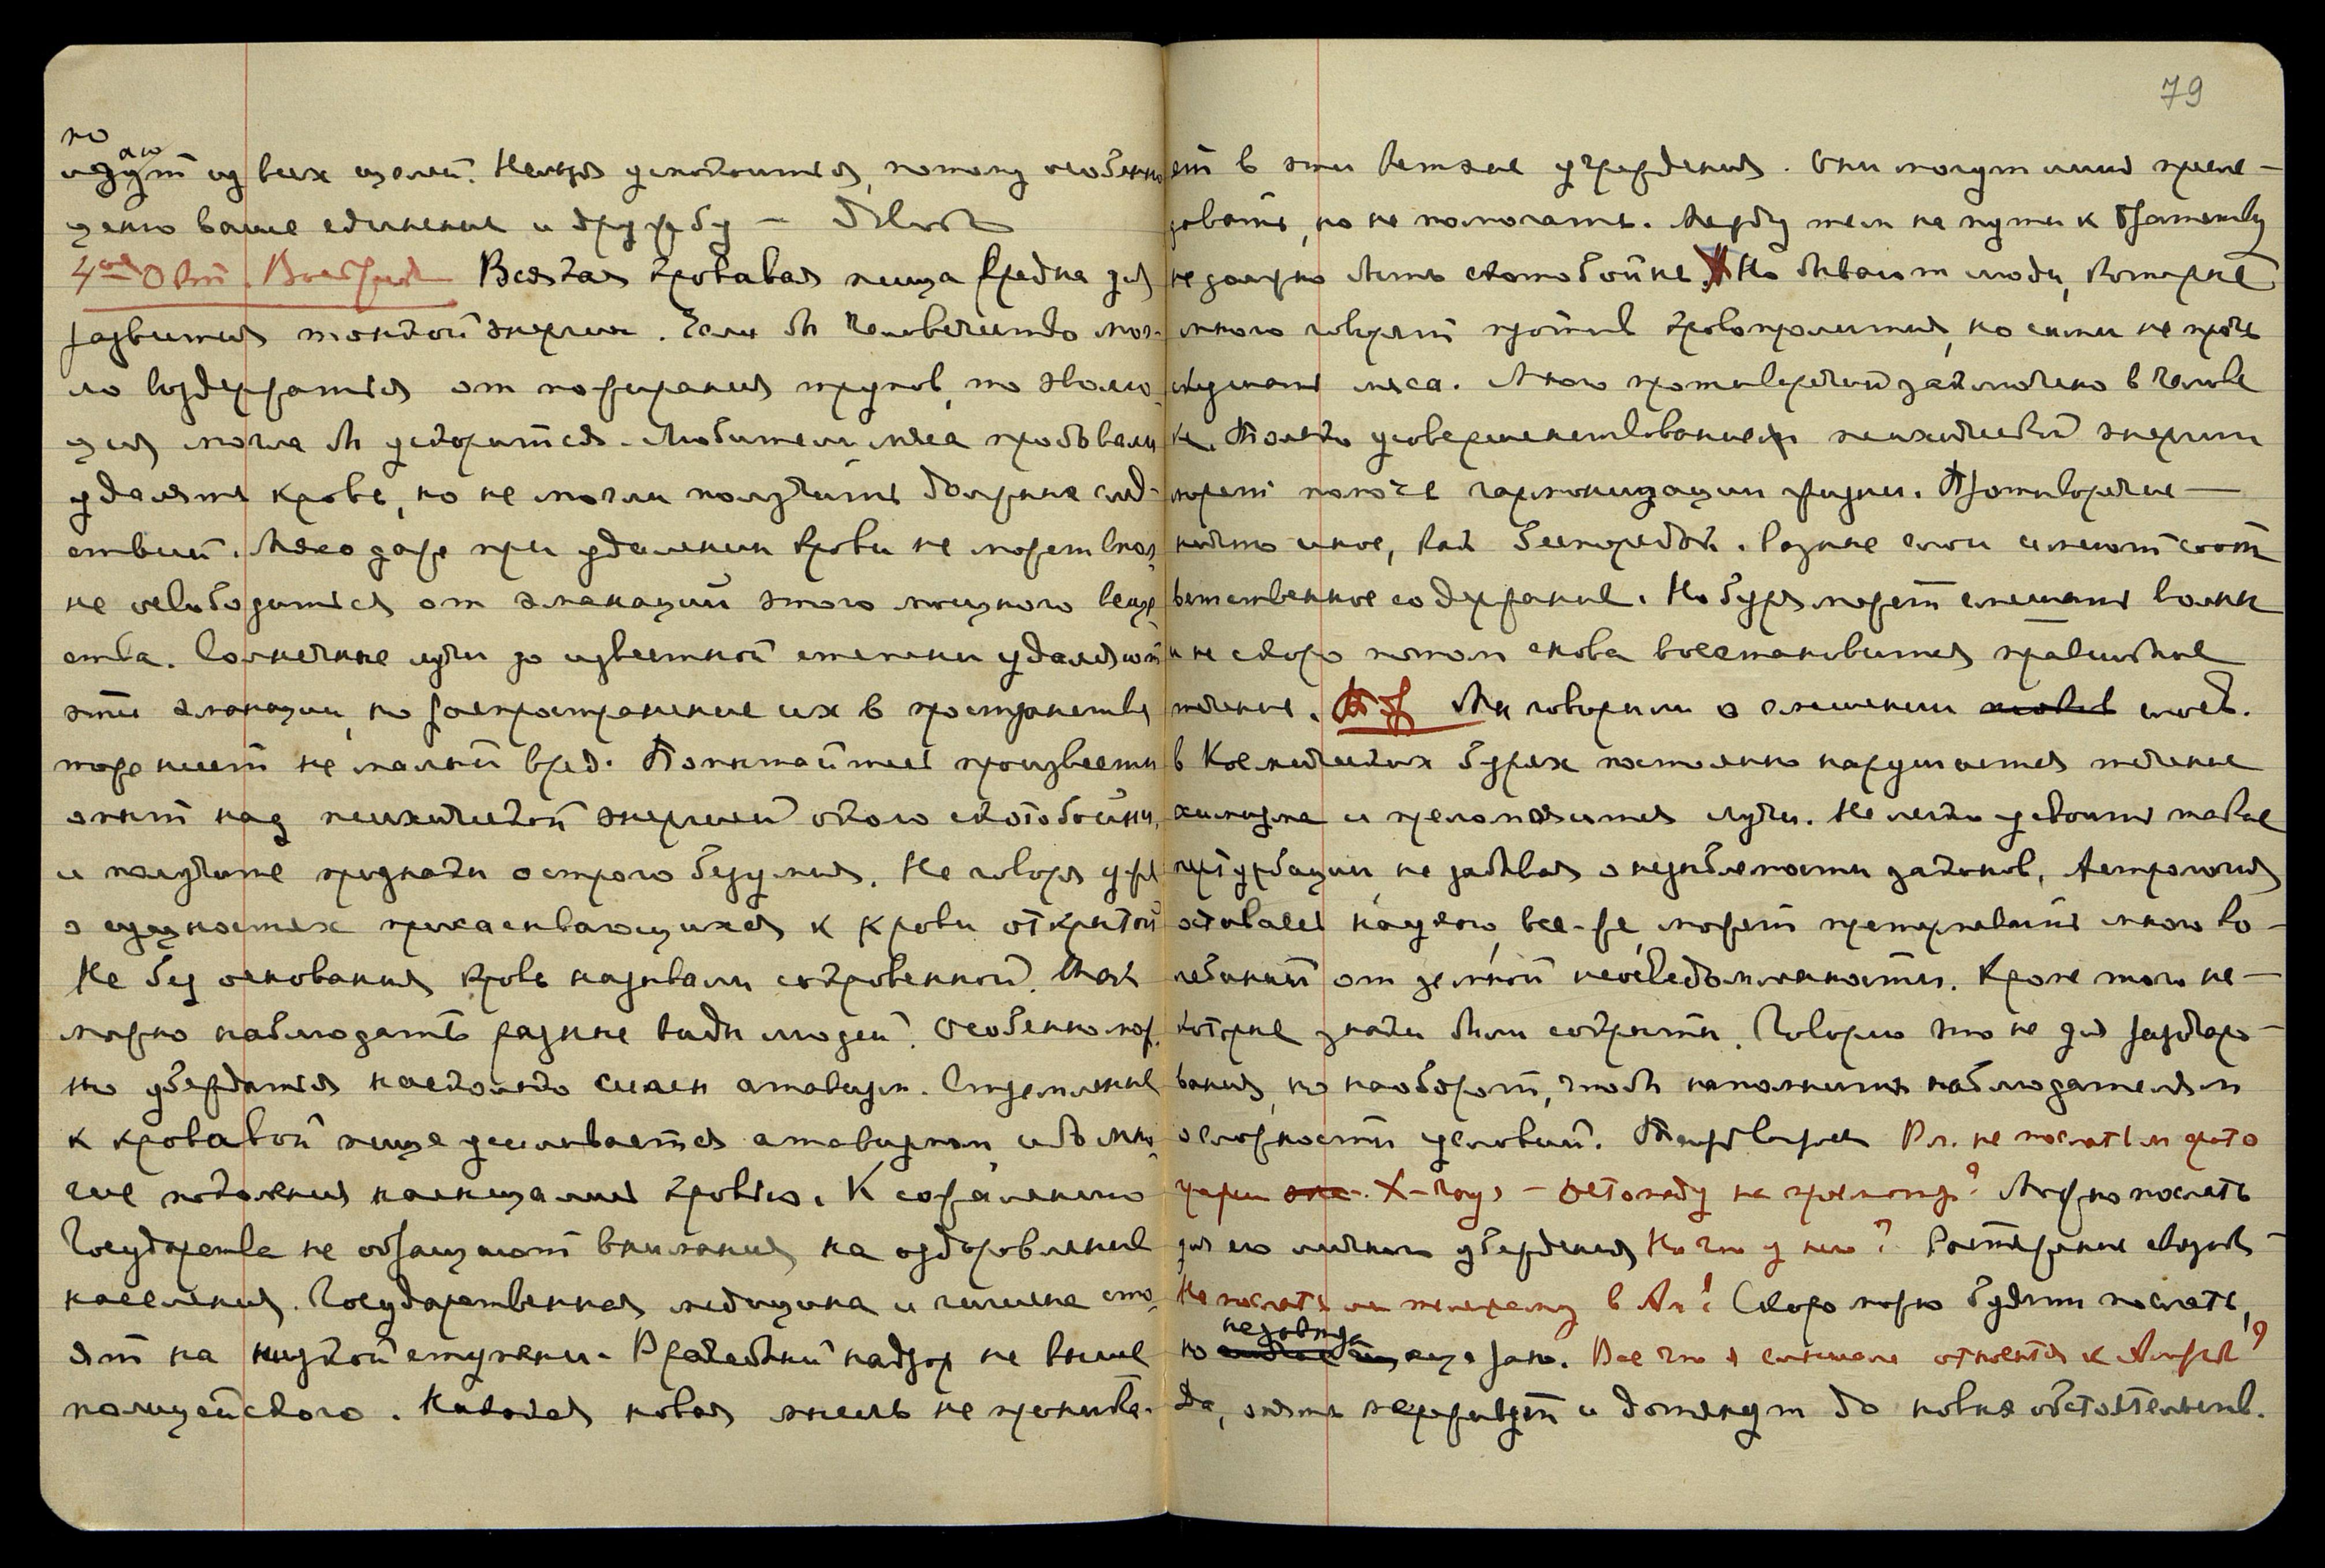 79
ползают из всех щелей. Нельзя успокоиться, потому особенно
ценю ваше единение и дружбу —
4ое Окт. Всякая кровавая пища вредна для
развития тонкой энергии. Если бы человечество мог-
ло воздержаться от пожирания трупов, то эволю-
ция могла бы ускориться. Любители мяса пробовали
удалять кровь, но не могли получить должных след-
ствий. Мясо даже при удалении крови не может впол-
не освободиться от эманаций этого мощного веще-
ства. Солнечные лучи до известной степени удаляют
эти эманации, но распространение их в пространстве
тоже несет не малый вред. Попытайтесь произвести
опыт над психической энергией около скотобойни,
и получите признаки острого безумия. Не говоря уже
о сущностях присасывающихся к крови открытой
Не без основания кровь называли сокровенной. Так
можно наблюдать разные виды людей. Особенно мож-
но убедиться насколько силен атавизм. Стремление
к кровавой пище усиливается атавизмом, ибо мно-
гие поколения насыщались кровью. К сожалению
Государства не обращают внимания на оздоровление
населения. Государственная медицина и гигиена сто-
ят на низкой ступени. Врачебный надзор не выше
полицейского. Никакая новая мысль не проника-
ет в эти ветхие учреждения. Они могут лишь пресле-
довать, но не помогать. Между тем на пути к братству
не должно быть скотобойне. Но бывают люди, которые
много говорят против кровопролития, но сами не прочь
скушать мяса. Много противоречий заключено в челове
ке. Только усовершенствование психической энергии
может помочь гармонизации жизни. Противоречие —
ничто иное, как беспорядок. Разные слои имеют соот
ветственное содержание. Но буря может смешать волны
и не скоро потом снова восстановится правильное
течение. Мы говорили о смешении слоев.
в Космических бурях постоянно нарушается течение
химизма и преломляются лучи. Не легко усвоить такие
пертурбации, не забывая о незыблемости законов. Астрология
оставаясь наукою, все-же может претерпевать много ко-
лебаний от земной неосведомленности. Кроме того не-
которые знаки были сокрыты. Говорю это не для разочаро-
вания, но наоборот, чтобы напомнить наблюдателям
о сложности условий. Вл. не послать ли фото
X-rays - ? Можно послать
для его личного убеждения Но что у него? Расстройство
Не послать ли телеграмму в Ам? Скоро можно будет послать,
но еще рано. Все что я слышала относится к Америке?
Да, опять и дотянут до новых обстоятельств.